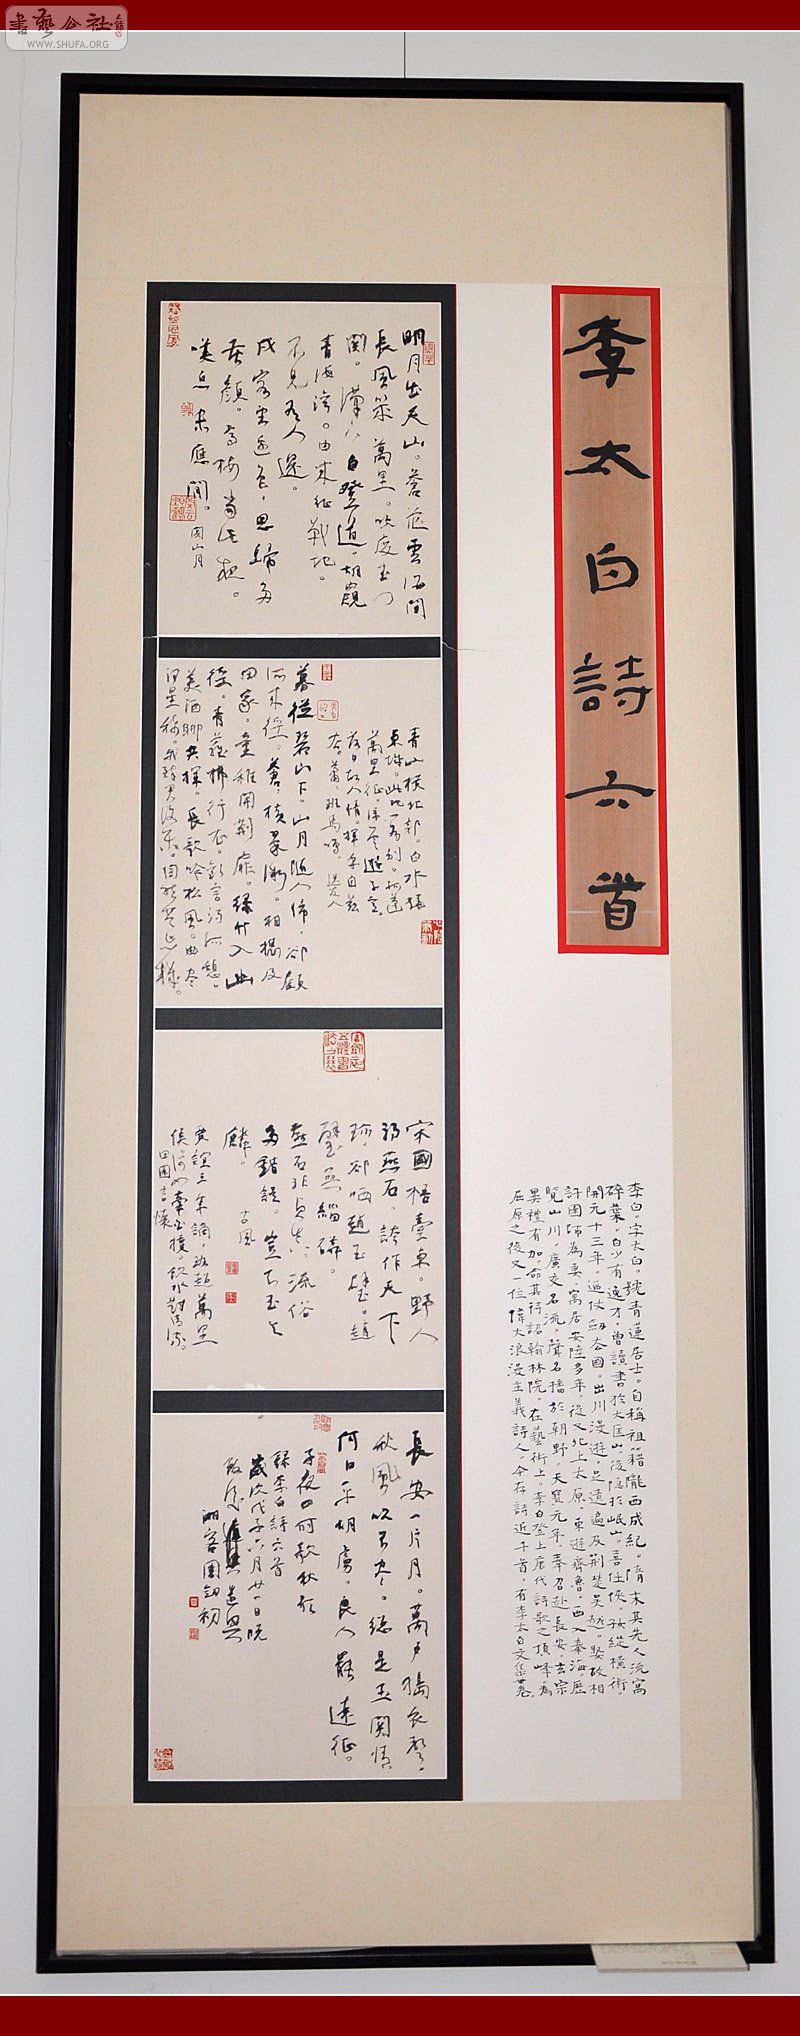 書藝公社
WWW.SHUFA.ORG
李太白詩六首
李白。字太白。號青蓮居士。自稱祖籍隴西成紀。隋末其先人流寓
碎葉。白少有逸才。曾讀書於大匡山。後隱於岷山。喜任俠。攻縱橫術。
開元十三年。仗劍去國。出川漫遊。足遺遍及荆楚吳越。娶故相
許圉師為妻。寓居安陸多年。後又北上太原。東遊齊魯。西入秦海。歷
覽山川。廣交名流。聲名播於朝野。天寶元年。奉召赴長安。玄宗
異禮有加。命其待詔翰林院。在藝術上。李白登上唐代詩歌之頂峰。為
屈原之後又一位偉大浪漫主義詩人。今存詩近千首。有李太白文集卷。
明月出天山。蒼茫雲海間
長風幾萬里。吹度玉門
關。漢下白登道。胡窺
青海灣。由來征戰地。
不見有人還。
戍客望邊色。思歸多
苦顏。高樓當此夜。
嘆息未應閒。關山月
青山橫北郭。白水繞
東城。此地一為別。孤蓬
萬里征。浮雲遊子意。
落日故人情。揮手自茲
去。蕭蕭班馬鳴。送友人
暮從碧山下。山月隨人歸。卻顧
所來徑。蒼蒼橫翠微。相攜及
田家。童稚開荆扉。綠竹入幽
徑。青蘿拂行衣。歡言得所憩。
美酒聊共揮。長歌吟松風。曲盡
河星稀。我醉君復樂。陶然共忘機。
宋國梧臺東。野人
得燕石。誇作天下
珍。卻哂趙王璧。趙
璧無緇磷。
燕石非貞真。流俗
多錯誤。豈知玉與
麟。 古風
賈誼三年謫。班超萬里
侯。何如牽白犢。飲水對清流。
田園言懷
長安一片月。萬戶搗衣聲。
秋風吹不盡。總是玉關情。
何日平胡虜。良人罷遠征。
子夜四時歌秋歌
錄李白詩六首
歲次戊子六月廿一日晚
湖客周劍初